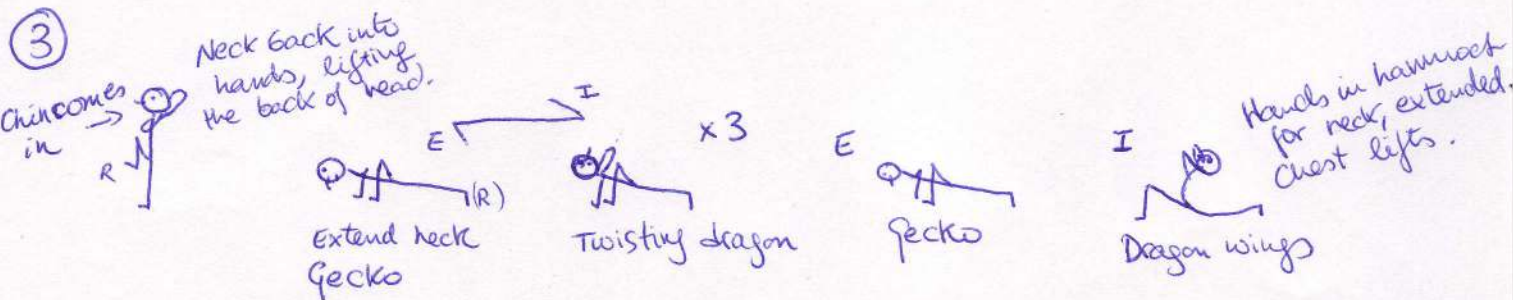 3
Chin comes
in
R
Neck back into
hands, lifting
the back of head.
E
I
x3
(R)
Extend neck
Gecko
Twisting dragon
E
Gecko
I
Dragon wings
Hands in hammock
for neck, extended.
Chest lifts.